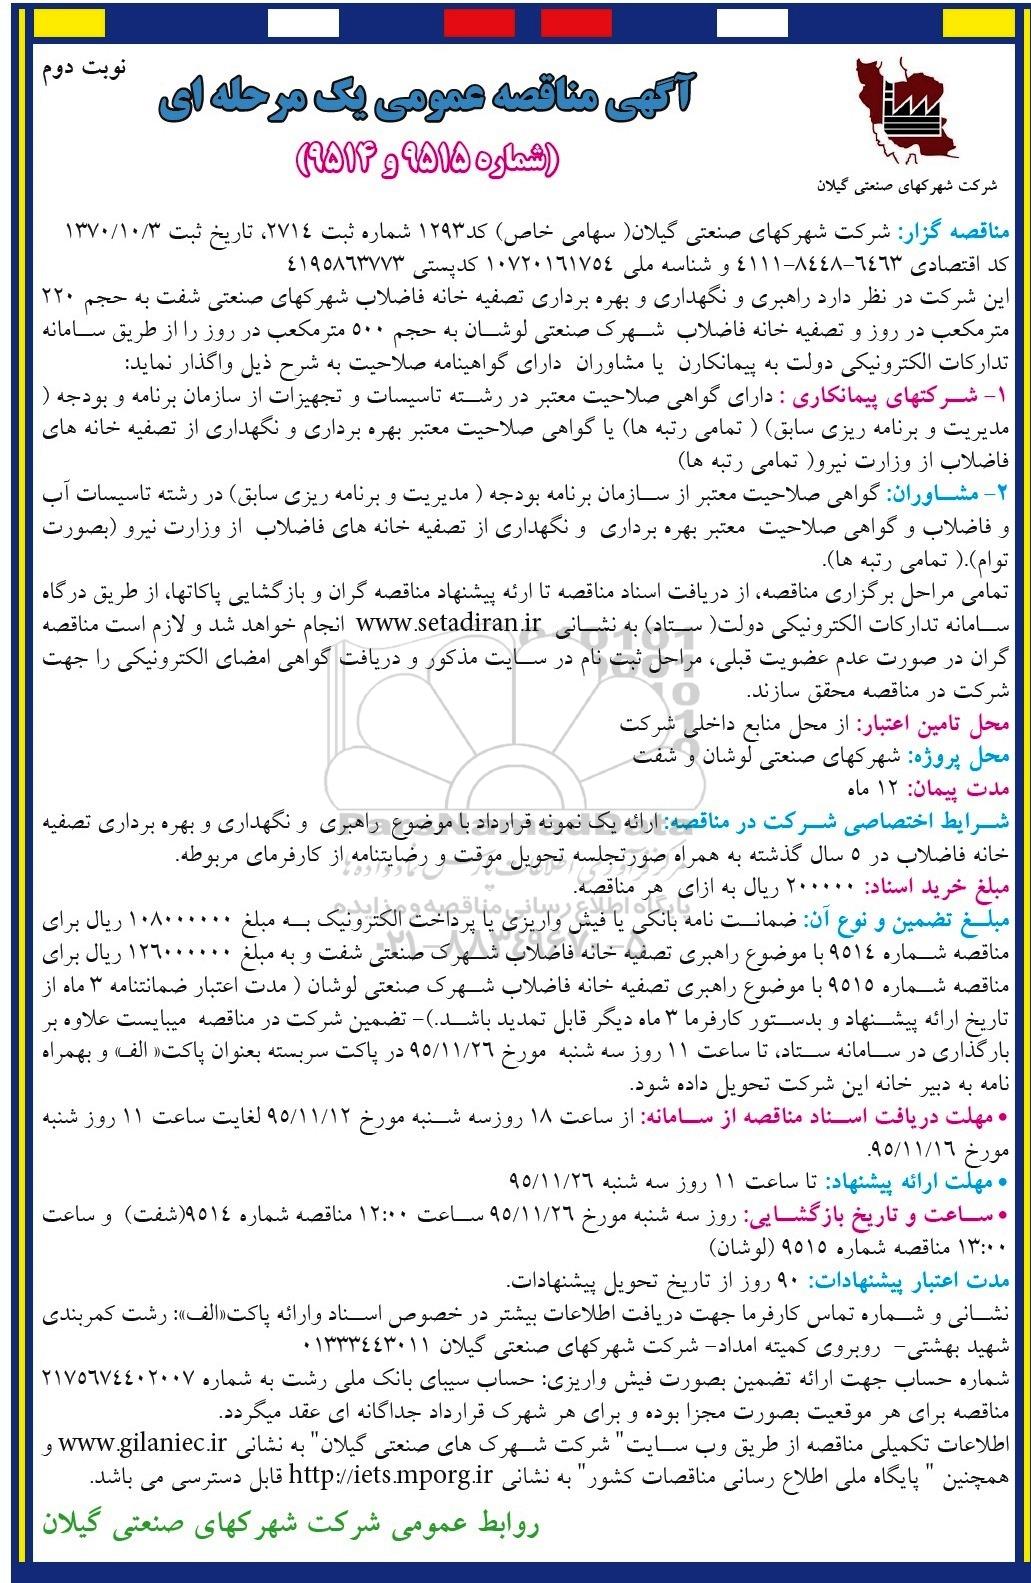 نوبت دوم
آگهی مناقصه عمومی یک مرحله ای
(شماره ۹۵۱۵ و ۹۵۱۴)
شرکت شهرکهای صنعتی گیلان
مناقصه گزار: شرکت شهرکهای صنعتی گیلان( سهامی خاص) کد۱۲۹۳ شماره ثبت ۲۷۱٤، تاریخ ثبت ۱۳۷۰/۱۰/۳
کد اقتصادی ٦٤٦۳-۸٤٤۸-٤۱۱۱ و شناسه ملی ۱۰۷۲۰۱٦۱۷٥٤ کدپستی ٤۱۹٥۸٦۳۷۷۳
این شرکت در نظر دارد راهبری و نگهداری و بهره برداری تصفیه خانه فاضلاب شهرکهای صنعتی شفت به حجم ۲۲۰
مترمکعب در روز و تصفیه خانه فاضلاب شهرک صنعتی لوشان به حجم ٥۰۰ مترمکعب در روز را از طریق سامانه
تدارکات الکترونیکی دولت به پیمانکارن یا مشاوران دارای گواهینامه صلاحیت به شرح ذیل واگذار نماید:
۱- شرکتهای پیمانکاری : دارای گواهی صلاحیت معتبر در رشته تاسیسات و تجهیزات از سازمان برنامه و بودجه (
مدیریت و برنامه ریزی سابق) ( تمامی رتبه ها) یا گواهی صلاحیت معتبر بهره برداری و نگهداری از تصفیه خانه های
فاضلاب از وزارت نیرو( تمامی رتبه ها)
۲- مشاوران: گواهی صلاحیت معتبر از سازمان برنامه بودجه ( مدیریت و برنامه ریزی سابق) در رشته تاسیسات آب
و فاضلاب و گواهی صلاحیت معتبر بهره برداری و نگهداری از تصفیه خانه های فاضلاب از وزارت نیرو (بصورت
توام).( تمامی رتبه ها).
تمامی مراحل برگزاری مناقصه، از دریافت اسناد مناقصه تا ارئه پیشنهاد مناقصه گران و بازگشایی پاکاتها، از طریق درگاه
سامانه تدارکات الکترونیکی دولت( ستاد) به نشانی www.setadiran.ir انجام خواهد شد و لازم است مناقصه
گران در صورت عدم عضویت قبلی، مراحل ثبت نام در سایت مذکور و دریافت گواهی امضای الکترونیکی را جهت
شرکت در مناقصه محقق سازند.
محل تامین اعتبار: از محل منابع داخلی شرکت
محل پروژه: شهرکهای صنعتی لوشان و شفت
مدت پیمان: ۱۲ ماه
شرایط اختصاصی شرکت در مناقصه: ارائه یک نمونه قرارداد با موضوع راهبری و نگهداری و بهره برداری تصفیه
خانه فاضلاب در ٥ سال گذشته به همراه صورتجلسه تحویل موقت و رضایتنامه از کارفرمای مربوطه.
مبلغ خرید اسناد: ۲۰۰۰۰۰ ریال به ازای هر مناقصه.
پایگاه اطلاع رسانی مناقصه و مزایده
مبلغ تضمین و نوع آن: ضمانت نامه بانکی یا فیش واریزی یا پرداخت الکترونیک به مبلغ ۱۰۸۰۰۰۰۰۰ ریال برای
۰۲۱-۸۸۳۴۹۶۷۰-۵
مناقصه شماره ۹٥۱٤ با موضوع راهبری تصفیه خانه فاضلاب شهرک صنعتی شفت و به مبلغ ۱۲٦۰۰۰۰۰۰ ریال برای
مناقصه شماره ۹٥۱٥ با موضوع راهبری تصفیه خانه فاضلاب شهرک صنعتی لوشان ( مدت اعتبار ضمانتنامه ۳ ماه از
تاریخ ارائه پیشنهاد و بدستور کارفرما ۳ ماه دیگر قابل تمدید باشد.)- تضمین شرکت در مناقصه میبایست علاوه بر
بارگذاری در سامانه ستاد، تا ساعت ۱۱ روز سه شنبه مورخ ۹٥/۱۱/۲٦ در پاکت سربسته بعنوان پاکت« الف» و بهمراه
نامه به دبیر خانه این شرکت تحویل داده شود.
• مهلت دریافت اسناد مناقصه از سامانه: از ساعت ۱۸ روزسه شنبه مورخ ۹٥/۱۱/۱۲ لغایت ساعت ۱۱ روز شنبه
مورخ ۹٥/۱۱/۱٦.
• مهلت ارائه پیشنهاد: تا ساعت ۱۱ روز سه شنبه ۹٥/۱۱/۲٦
• ساعت و تاریخ بازگشایی: روز سه شنبه مورخ ۹٥/۱۱/۲٦ ساعت ۱۲:۰۰ مناقصه شماره ۹٥۱٤(شفت) و ساعت
۱۳:۰۰ مناقصه شماره ۹٥۱٥ (لوشان)
مدت اعتبار پیشنهادات: ۹۰ روز از تاریخ تحویل پیشنهادات.
نشانی و شماره تماس کارفرما جهت دریافت اطلاعات بیشتر در خصوص اسناد وارائه پاکت«الف»: رشت کمربندی
شهید بهشتی- روبروی کمیته امداد- شرکت شهرکهای صنعتی گیلان ۰۱۳۳۳٤٤۳۰۱۱
شماره حساب جهت ارائه تضمین بصورت فیش واریزی: حساب سیبای بانک ملی رشت به شماره ۲۱۷٥٦۷٤٤۰۲۰۰۷
مناقصه برای هر موقعیت بصورت مجزا بوده و برای هر شهرک قرارداد جداگانه ای عقد میگردد.
اطلاعات تکمیلی مناقصه از طریق وب سایت" شرکت شهرک های صنعتی گیلان" به نشانی www.gilaniec.ir و
همچنین " پایگاه ملی اطلاع رسانی مناقصات کشور" به نشانی http://iets.mporg.ir قابل دسترسی می باشد.
روابط عمومی شرکت شهرکهای صنعتی گیلان